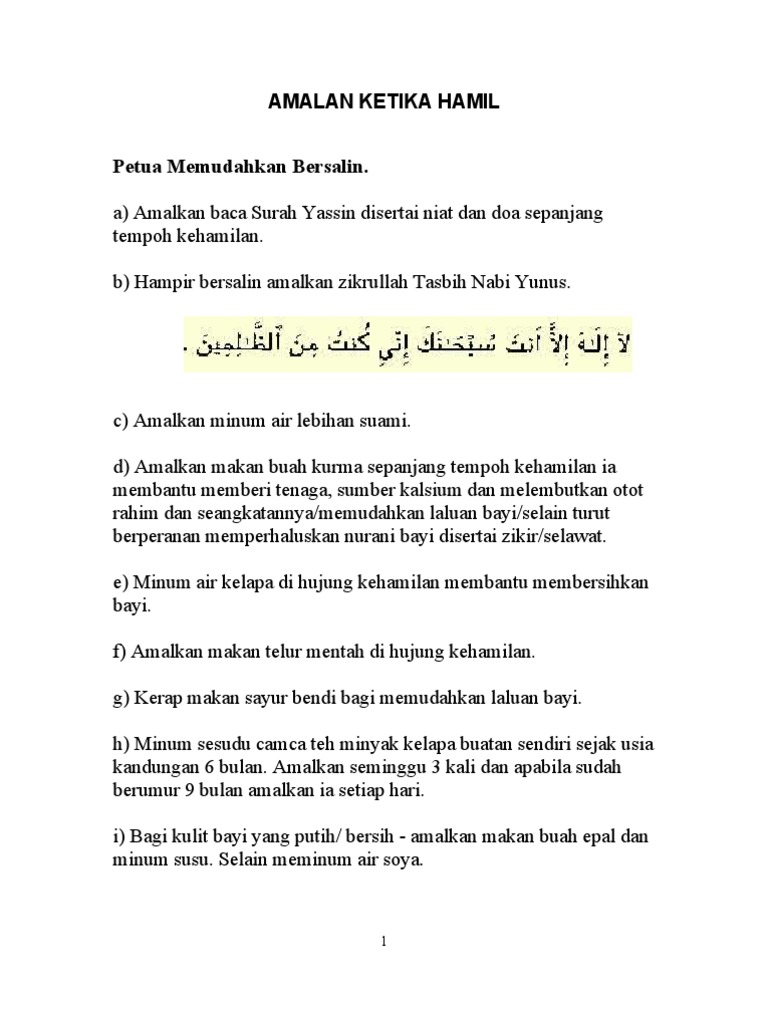 AMALAN KETIKA HAMIL
Petua Memudahkan Bersalin.
a) Amalkan baca Surah Yassin disertai niat dan doa sepanjang
tempoh kehamilan.
b) Hampir bersalin amalkan zikrullah Tasbih Nabi Yunus.
لَا إِلَٰهَ إِلَّا أَنتَ سُبْحَٰنَكَ إِنِّي كُنتُ مِنَ ٱلظَّٰلِمِينَ .
c) Amalkan minum air lebihan suami.
d) Amalkan makan buah kurma sepanjang tempoh kehamilan ia
membantu memberi tenaga, sumber kalsium dan melembutkan otot
rahim dan seangkatannya/memudahkan laluan bayi/selain turut
berperanan memperhaluskan nurani bayi disertai zikir/selawat.
e) Minum air kelapa di hujung kehamilan membantu membersihkan
bayi.
f) Amalkan makan telur mentah di hujung kehamilan.
g) Kerap makan sayur bendi bagi memudahkan laluan bayi.
h) Minum sesudu camca teh minyak kelapa buatan sendiri sejak usia
kandungan 6 bulan. Amalkan seminggu 3 kali dan apabila sudah
berumur 9 bulan amalkan ia setiap hari.
i) Bagi kulit bayi yang putih/ bersih - amalkan makan buah epal dan
minum susu. Selain meminum air soya.
1